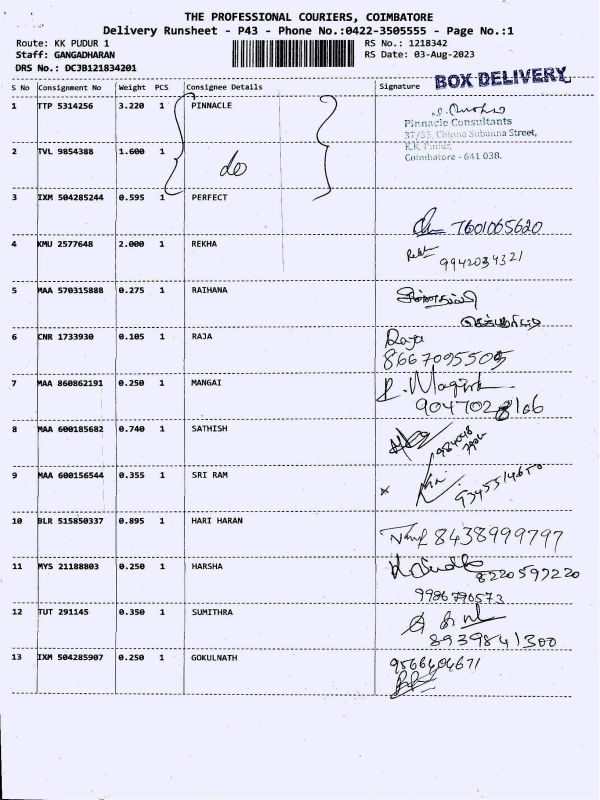 THE PROFESSIONAL COURIERS, COIMBATORE
Delivery Runsheet - P43 - Phone No.:0422-3505555 - Page No.:1
Route: KK PUDUR 1 RS No.: 1218342
Staff: GANGADHARAN RS Date: 03-Aug-2023
DRS No.: DCJB121834201
BOX DELIVERY
S No Consignment No Weight PCS Consignee Details Signature
1 TTP 5314256 3.220 1 PINNACLE
Pinnacle Consultants
37/33, Chinna Subanna Street,
K.K. Pudur,
Coimbatore - 641 038.
2 TVL 9854388 1.600 1 do
3 IXM 504285244 0.595 1 PERFECT
7601065620
4 KMU 2577648 2.000 1 REKHA
9942034321
5 MAA 570315888 0.275 1 RAIHANA
6 CNR 1733930 0.105 1 RAJA Raja
8667095505
7 MAA 860862191 0.250 1 MANGAI
9047028166
8 MAA 600185682 0.740 1 SATHISH
9 MAA 600156544 0.355 1 SRI RAM
9345514650
10 BLR 515850337 0.895 1 HARI HARAN 8438999797
11 MYS 21188803 0.250 1 HARSHA 8220592220
9986790573
12 TUT 291145 0.350 1 SUMITHRA
8939841300
13 IXM 504285907 0.250 1 GOKULNATH 9566404671